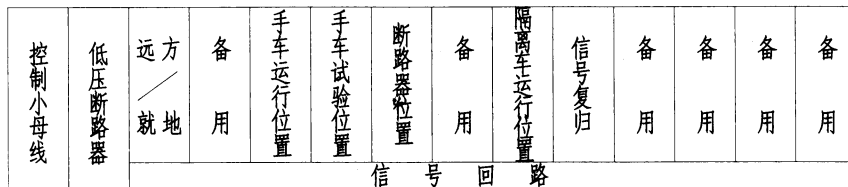 控制小母线
低压断路器
远方／就地
备用
手车运行位置
手车试验位置
断路器位置
备用
隔离车运行位置
信号复归
备用
备用
备用
备用
信号回路